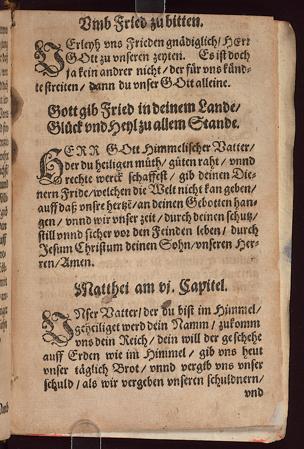 Umb Fried zu bitten.
VErleyh vns Frieden gnädiglich/ Herr
GOtt zu vnseren zeyten. Es ist doch
ja kein andrer nicht/ der für vns künd-
te streiten/ dann du vnser GOtt alleine.
Gott gib Fried in deinem Lande/
Glück vnd Heyl zu allem Stande.
HERR GOtt Himmelischer Vatter/
der du heiligen můth/ güten raht/ vnnd
rechte werck schaffest/ gib deinen Die-
nern Fride/ welchen die Welt nicht kan geben/
auff daß vnsre hertzē/ an deinen Gebotten han-
gen/ vnnd wir vnser zeit/ durch deinen schutz/
still vnnd sicher vor den Feinden leben/ durch
Jesum Christum deinen Sohn/ vnseren Her-
ren/ Amen.
Matthei am vj. Capitel.
UNser Vatter/ der du bist im Himmel/
geheiliget werd dein Namm/ zukomm
vns dein Reich/ dein will der geschehe
auff Erden wie im Himmel/ gib vns heut
vnser täglich Brot/ vnnd vergib vns vnser
schuld/ als wir vergeben vnseren schuldnern/
vnd